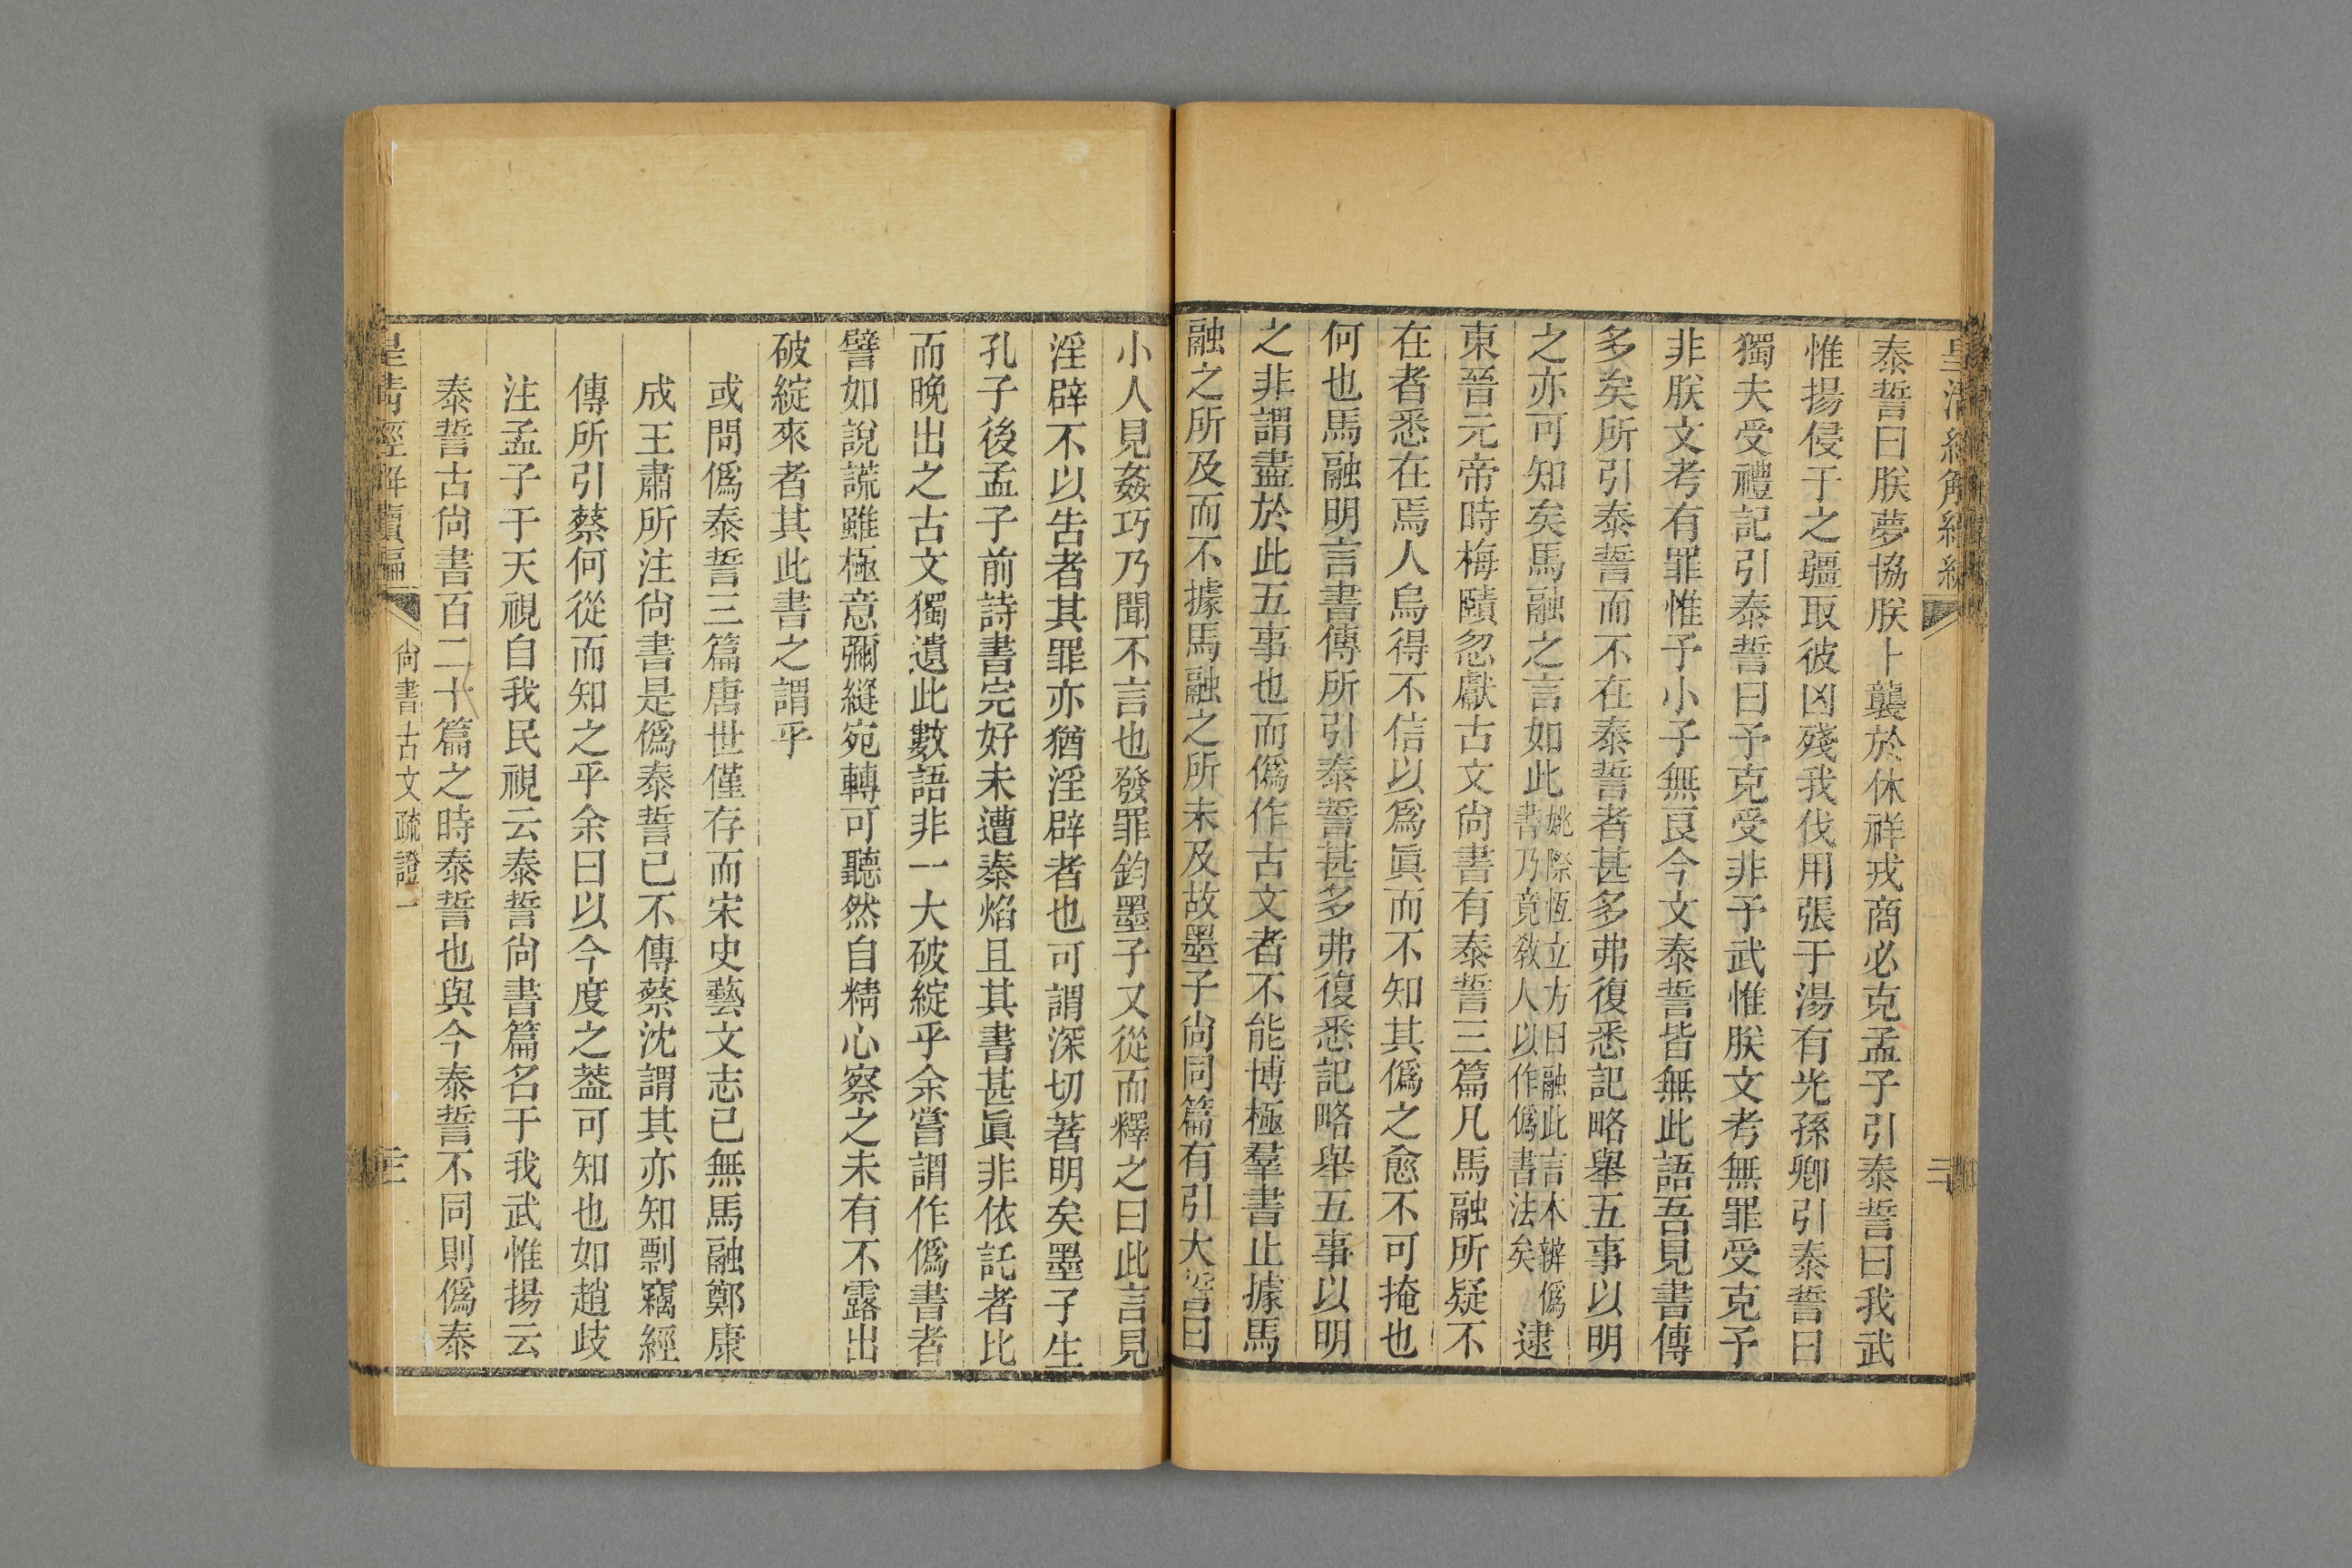 泰誓曰朕夢協朕卜襲於休祥戎商必克孟子引泰誓曰我武
惟揚侵于之疆取彼凶殘我伐用張于湯有光孫卿引泰誓曰
獨夫受禮記引泰誓曰予克受非予武惟朕文考無罪受克予
非朕文考有罪惟予小子無良今文泰誓皆無此語吾見書傳
多矣所引泰誓而不在泰誓者甚多弗復悉記略舉五事以明
之亦可知矣馬融之言如此姚際恆立方曰融此言本辨僞書乃竟敎人以作僞書法矣逮
東晉元帝時梅賾忽獻古文尙書有泰誓三篇凡馬融所疑不
在者悉在焉人烏得不信以爲眞而不知其僞之愈不可掩也
何也馬融明言書傳所引泰誓甚多弗復悉記略舉五事以明
之非謂盡於此五事也而僞作古文者不能博極羣書止據馬
融之所及而不據馬融之所未及故墨子尙同篇有引大誓曰
小人見姦巧乃聞不言也發罪鈞墨子又從而釋之曰此言見
淫辟不以告者其罪亦猶淫辟者也可謂深切著明矣墨子生
孔子後孟子前詩書完好未遭秦焰且其書甚眞非依託者比
而晚出之古文獨遺此數語非一大破綻乎余嘗謂作僞書者
譬如說謊雖極意彌縫宛轉可聽然自精心察之未有不露出
破綻來者其此書之謂乎
或問僞泰誓三篇唐世僅存而宋史藝文志已無馬融鄭康
成王肅所注尙書是僞泰誓已不傳蔡沈謂其亦知剽竊經
傳所引蔡何從而知之乎余曰以今度之葢可知也如趙歧
注孟子于天視自我民視云泰誓尙書篇名于我武惟揚云
泰誓古尙書百二十篇之時泰誓也與今泰誓不同則僞泰
皇淸經解續編
尙書古文疏證一